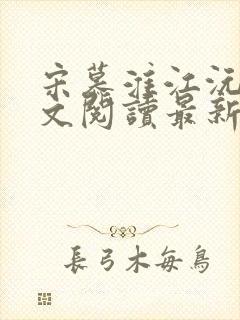 宋慕淮江沅
文閱讀最新
長弓木每鳥